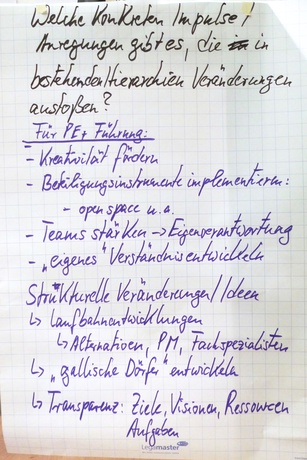 Welche konkreten Impulse/
Anregungen gibt es, die in
bestehenden Hierarchien Veränderungen
anstoßen?
Für PE + Führung:
- Kreativität fördern
- Beteiligungsinstrumente implementieren:
- open space u.a.
- Teams stärken → Eigenverantwortung
- „eigenes" Verständnis entwickeln
Strukturelle Veränderungen/Ideen
↳ Laufbahnentwicklungen
↳ Alternativen, PM, Fachspezialisten
↳ „gallische Dörfer" entwickeln
↳ Transparenz: Ziele, Visionen, Ressourcen
Aufgaben
Legamaster